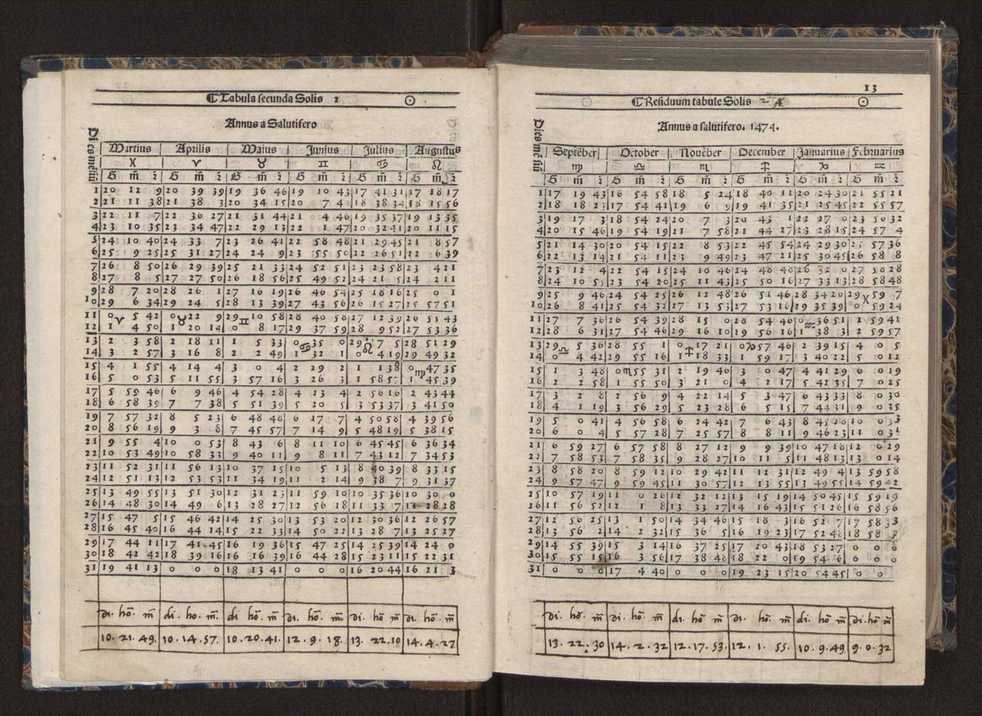 ☾Tabula secunda Solis 2 ☉
Annus a Salutifero
Dies mēsiū
Martius Aprilis Maius Junius Julius Augustus
♓ ♈ ♉ ♊ ♋ ♌
G m̄ 2 G m̄ 2 G m̄ 2 G m̄ 2 G m̄ 2 G m̄ 2
1 20 12 9 20 39 39 19 36 46 19 10 43 17 41 31 17 18 17
2 21 11 38 21 38 3 20 34 15 20 7 4 18 38 34 18 15 56
3 22 11 7 22 36 27 21 31 44 21 4 46 19 35 37 19 13 35
4 23 10 35 23 34 47 22 29 13 22 1 47 20 32 41 20 11 15
5 24 10 40 24 33 7 23 26 41 22 58 48 21 29 45 21 8 57
6 25 9 25 25 31 27 24 24 9 23 55 50 22 26 51 22 6 39
7 26 8 50 26 29 39 25 21 33 24 52 51 23 23 58 23 4 21
8 27 8 5 27 27 50 26 18 56 25 49 52 24 21 5 24 2 11
9 28 7 20 28 26 1 27 16 19 26 46 54 25 18 16 25 0 1
10 29 6 34 29 24 5 28 13 39 27 43 56 26 15 27 25 57 51
11 0 ♈ 5 42 0 ♉ 22 9 29 ♊ 10 58 28 40 50 27 12 39 26 55 43
12 1 4 50 1 20 14 0 8 17 29 37 59 28 9 52 27 53 36
13 2 3 58 2 18 11 1 5 33 0 ♋ 35 0 29 ♌ 7 5 28 51 29
14 3 2 57 3 16 8 2 2 49 1 32 1 0 4 19 29 49 32
15 4 1 55 4 14 4 3 0 4 2 29 2 1 1 38 0 ♍ 47 35
16 5 0 53 5 11 55 3 57 16 3 26 3 1 58 57 1 45 39
17 5 59 46 6 9 46 4 54 28 4 13 4 2 56 16 2 43 44
18 6 58 39 7 7 38 5 51 39 5 20 5 3 53 37 3 41 50
19 7 57 32 8 5 23 6 48 48 6 17 7 4 50 58 4 39 56
20 8 56 19 9 3 8 7 45 57 7 14 9 5 48 19 5 38 15
21 9 55 4 10 0 53 8 43 6 8 11 10 6 45 45 6 36 34
22 10 53 49 10 58 33 9 40 11 9 8 11 7 43 12 7 34 53
23 11 52 31 11 56 13 10 37 15 10 5 13 8 40 39 8 33 15
24 12 51 13 12 53 53 11 34 19 11 2 14 9 38 7 9 31 37
25 13 49 55 13 51 30 12 31 23 11 59 10 10 35 36 10 30 0
26 14 48 30 14 49 6 13 28 27 12 56 18 11 33 7 11 28 28
27 15 47 5 15 46 42 14 25 30 13 53 20 12 30 36 12 26 57
28 16 45 49 16 44 14 15 22 33 14 50 22 13 28 7 13 25 27
29 17 44 11 17 41 45 16 19 36 15 47 25 14 25 39 14 24 0
30 18 42 42 18 39 16 16 16 39 16 44 28 15 23 11 15 22 31
31 19 41 13 0 0 0 18 13 41 0 0 0 16 20 44 16 21 3
di. hō. m̄ di. ho. m̄ di. hō. m̄ di. hō. m̄ di. hō m̄ di. hō. m̄
10. 21. 49. 10. 14. 57. 10. 20. 41. 12. 9. 18. 13. 22. 10 14. 4. 27
13
☾Residuum tabule Solis 2 A ☉
Annus a salutifero. 1474.
Dies mēsiū
Septēber October Nouēber December Januarius Februarius
♍ ♎ ♏ ♐ ♑ ♒
G m̄ 2 G m̄ 2 G m̄ 2 G m̄ 2 G m̄ 2 G m̄ 2
1 17 19 43 16 54 58 18 5 24 18 40 11 20 24 30 21 55 21
2 18 18 23 17 54 41 19 6 9 19 41 35 21 25 45 22 55 57
3 19 17 3 18 54 24 20 7 3 20 43 1 22 27 0 23 50 32
4 20 15 46 19 54 19 21 7 58 21 44 27 23 28 15 24 57 4
5 21 14 30 20 54 15 22 8 53 22 45 54 24 29 30 25 57 36
6 22 13 14 21 54 11 23 9 49 23 47 21 25 30 45 26 58 8
7 23 12 4 22 54 15 24 10 46 24 48 40 26 32 0 27 58 28
8 24 10 55 23 54 20 25 11 43 25 50 16 27 33 13 28 58 48
9 25 9 46 24 54 25 26 12 48 26 51 46 28 34 26 29 ♓ 59 7
10 26 8 41 25 54 32 27 13 53 27 53 16 29 35 39 0 59 24
11 27 7 36 26 54 39 28 15 0 28 54 46 0 ♒ 36 51 1 59 41
12 28 6 31 27 54 46 29 16 10 29 56 16 1 38 3 2 59 57
13 29 ♎ 5 36 28 55 1 0 ♐ 17 21 0 ♑ 57 46 2 39 15 4 0 5
14 0 4 42 29 55 16 1 18 33 1 59 17 3 40 22 5 0 12
15 1 3 48 0 ♏ 55 31 2 19 46 3 0 47 4 41 29 6 0 19
16 2 2 58 1 55 50 3 21 0 4 2 17 5 42 35 7 0 25
17 3 2 8 2 56 9 4 22 14 5 3 47 6 43 33 8 0 30
18 4 1 19 3 56 29 5 23 28 6 5 15 7 44 31 9 0 35
19 5 0 41 4 56 58 6 24 42 7 6 43 8 45 20 10 0 33
20 6 0 4 5 57 28 7 25 57 8 8 11 9 46 23 11 0 31
21 6 59 27 6 57 58 8 27 12 9 9 39 10 47 18 12 0 29
22 7 58 53 7 58 35 9 28 27 10 11 5 11 48 13 13 0 14
23 8 58 20 8 59 12 10 29 42 11 12 31 12 49 4 13 59 58
24 9 57 47 9 59 45 11 30 57 12 13 55 13 49 55 14 59 42
25 10 57 19 11 0 26 12 32 12 13 15 19 14 50 45 15 59 19
26 11 56 52 12 1 8 13 33 27 14 16 43 15 51 26 16 58 56
27 12 56 25 13 1 50 14 34 46 15 18 3 16 52 7 17 58 33
28 13 56 2 14 2 32 15 36 5 16 19 23 17 52 48 18 58 3
29 14 55 39 15 3 14 16 37 25 17 20 43 18 53 27 0 0 0
30 15 55 15 16 3 56 17 38 46 18 22 0 19 54 6 0 0 0
31 0 0 0 17 4 40 0 0 0 19 23 15 20 54 45 0 0
di. hō. m̄ di. hō. m̄ di. hō. m̄ di. hō. m̄ di. hō. m̄ di. hō. m̄
13. 22. 30 14. 2. 32 12. 17. 53. 12. 1. 55. 10. 9. 49 9. 0. 32